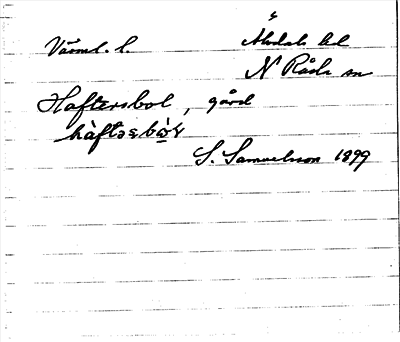 Värml. l. Älvdals hd
N Råda sn
Haftersbol, gård
hàftəsbò̱ɤ
S. Samuelsson 1899